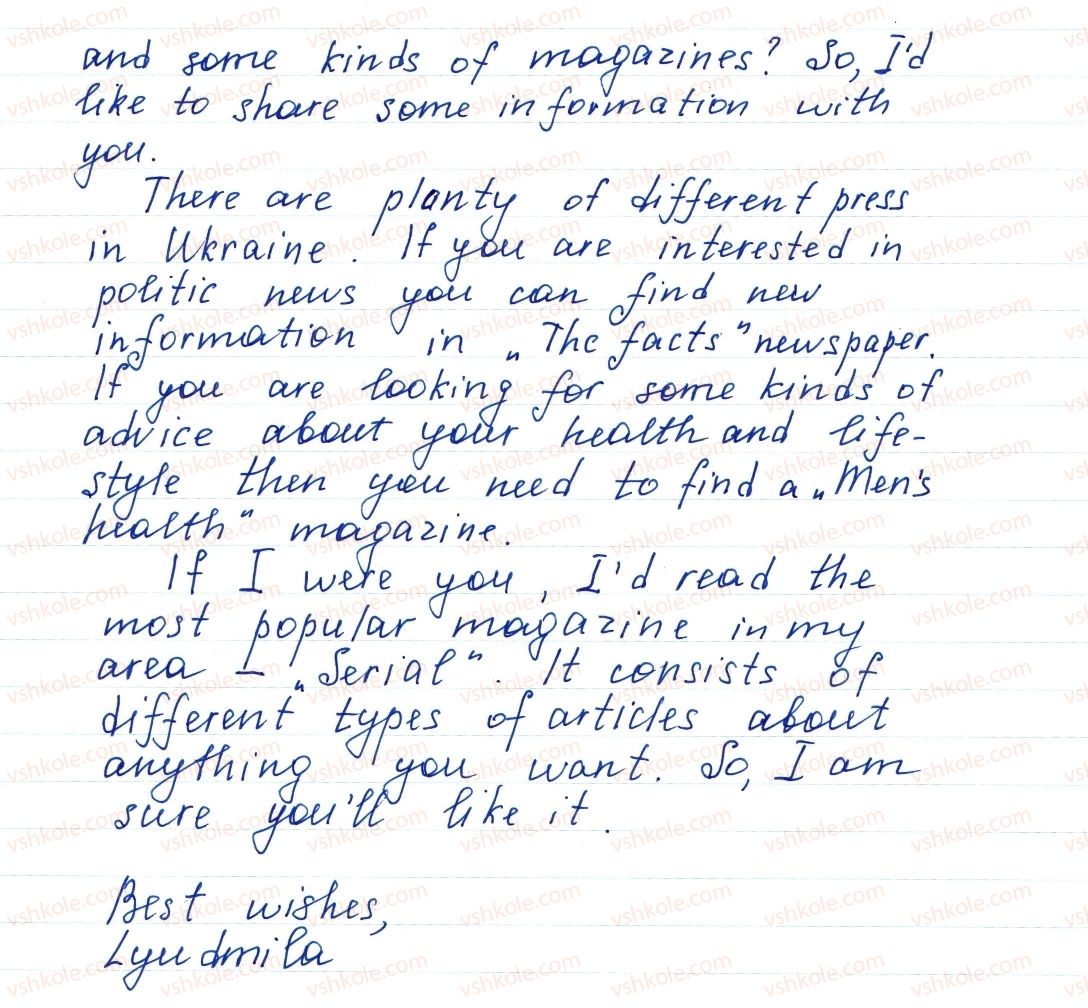 and some kinds of magazines? So, I'd
like to share some information with
you.
There are planty of different press
in Ukraine. If you are interested in
politic news you can find new
information in „The facts" newspaper.
If you are looking for some kinds of
advice about your health and life-
style then you need to find a „Men's
health" magazine.
If I were you, I'd read the
most popular magazine in my
area – „Serial". It consists of
different types of articles about
anything you want. So, I am
sure you'll like it.
Best wishes,
Lyudmila